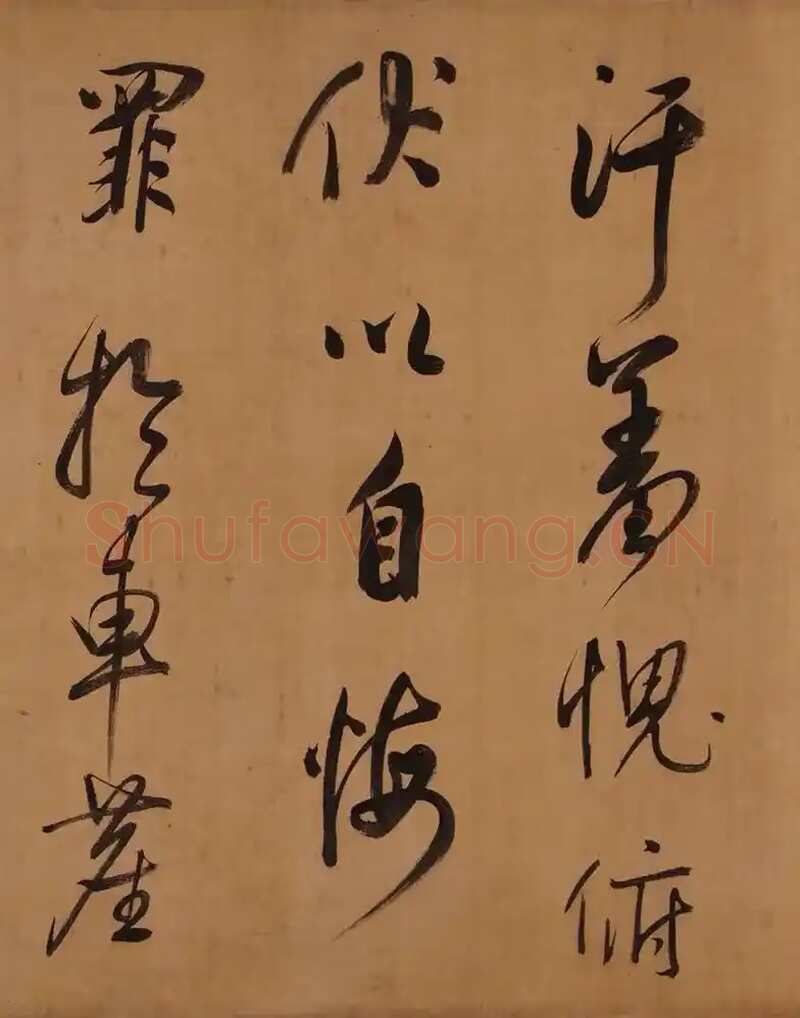 汗羞愧俯
伏以自悔
罪於車塵
Shufawang.CN